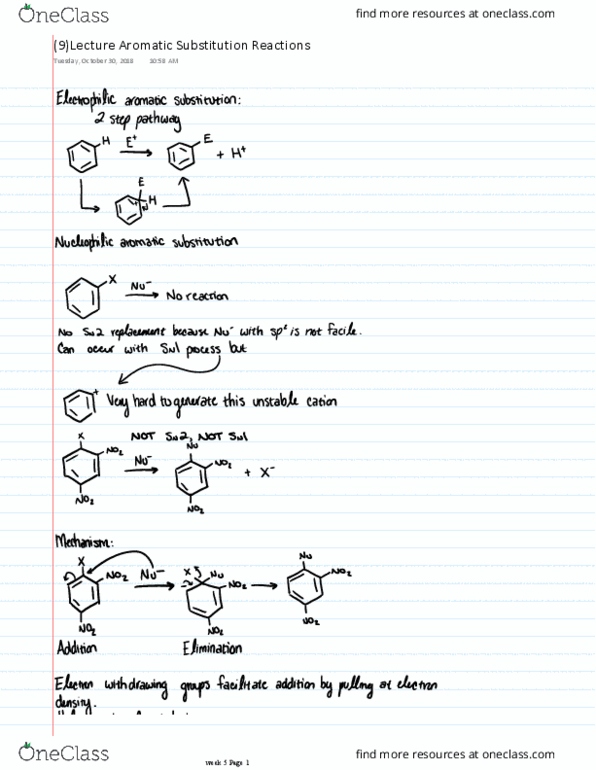 OneClass
find more resources at oneclass.com
(9)Lecture Aromatic Substitution Reactions
Tuesday, October 30, 2018 10:58 AM
Electrophilic aromatic substitution:
2 step pathway
H E+ E + H+
E
H
Nucleophilic aromatic substitution
X Nu- No reaction
No SN2 replacement because Nu- with sp2 is not facile.
Can occur with SN1 process but
+ Very hard to generate this unstable cation
NOT SN2, NOT SN1
X NO2 Nu- Nu NO2 + X-
NO2 NO2
Mechanism:
X NO2 Nu- X Nu NO2 Nu NO2
NO2 NO2 NO2
Addition Elimination
Electron withdrawing groups facilitate addition by pulling at electron
density.
OneClass
Week 5 Page 1
find more resources at oneclass.com